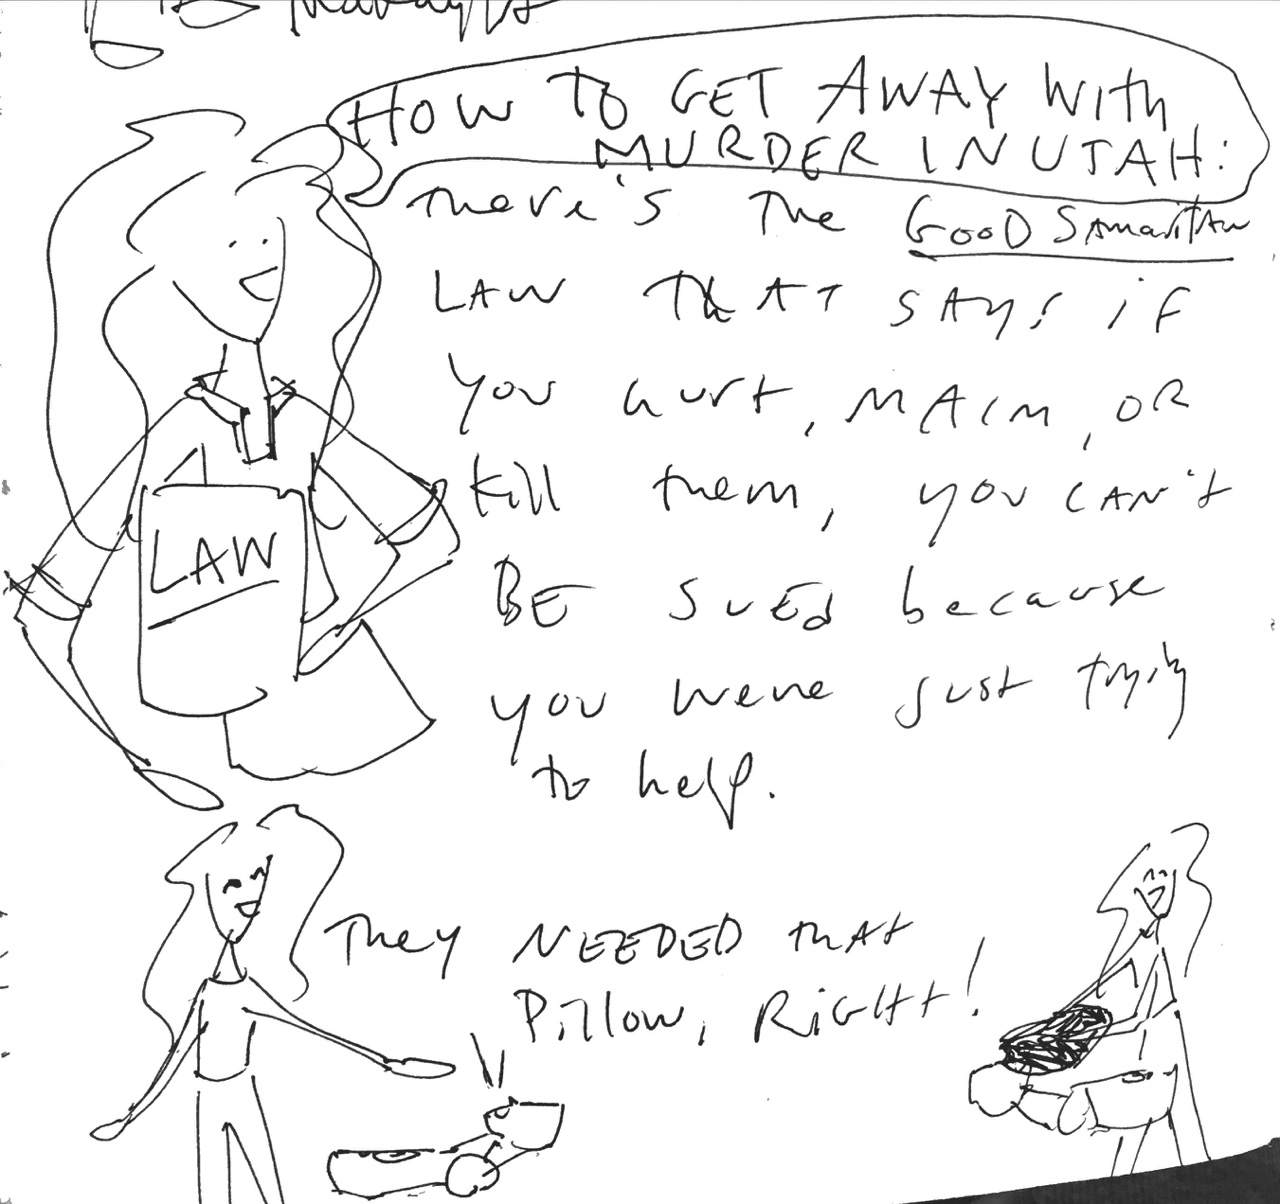 HOW TO GET AWAY WITH
MURDER IN UTAH:
There's the GOOD SAMARITAN
LAW THAT SAYS if
you hurt, MAIM, OR
kill them, you CAN't
BE SUEd because
you were just trying
to help.
LAW
They NEEDED that
Pillow, Right!